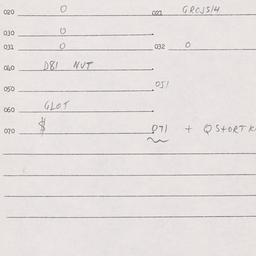 020 0 021 GROJS14
030 0
031 0 032 0
040 DBI NUT
050 051
060 GLOT
070 $ 071 + Q STORT